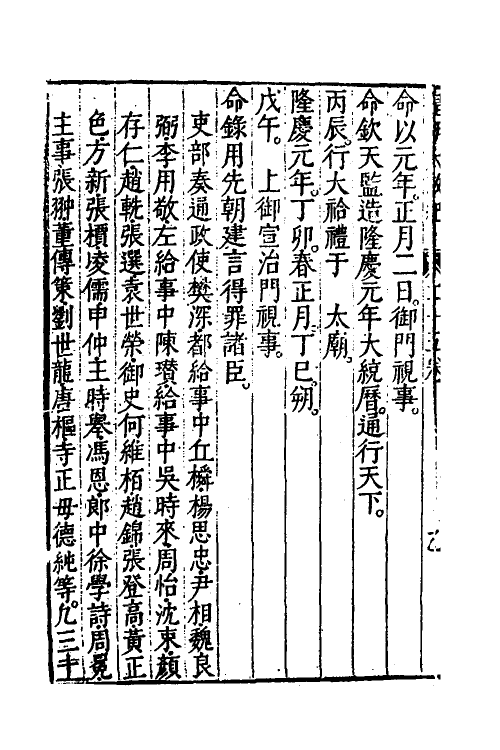 命以元年。正月二日。御門視事。
命欽天監造隆慶元年大統曆。通行天下。
丙辰。行大祫禮于　太廟。
隆慶元年。丁卯。春正月丁巳。朔。
戊午。　上御宣治門視事。
命錄用先朝建言得罪諸臣。
吏部奏通政使樊深都給事中丘橓楊思忠尹相魏良
弼李用敬左給事中陳瓚給事中吳時來周怡沈束顏
存仁趙軏張選袁世榮御史何維栢趙錦張登高黃正
色方新張檟凌儒申仲王時舉馮恩郎中徐學詩周冕
主事張翀董傳策劉世龍唐樞寺正毋德純等。凡三十